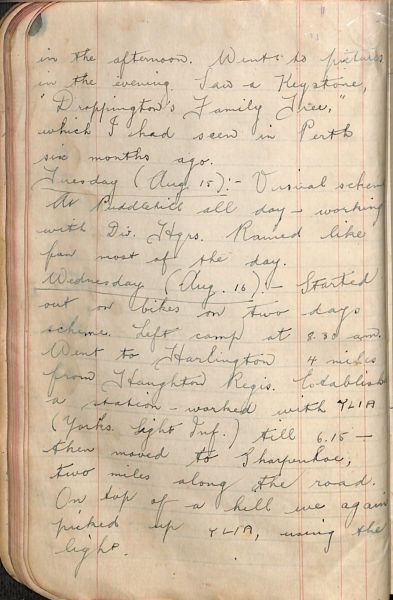 in the afternoon. Went to pictures
in the evening. Saw a Keystone,
"Droppington's Family Tree,"
which I had seen in Perth
six months ago.
Tuesday (Aug. 15):- Visual scheme
At Puddlehill all day - working
with Div. Hqrs. Rained like
fun most of the day.
Wednesday (Aug. 16):- Started
out on bikes on two days
scheme. Left camp at 8.30 am.
Went to Harlington 4 miles
from Houghton Regis. Establish
a station - worked with YLIA
(Yorks. Light Inf.) till 6.15 -
then moved to Sharpenhoe,
two miles along the road.
On top of a hill we again
picked up YLIA, using the
light.